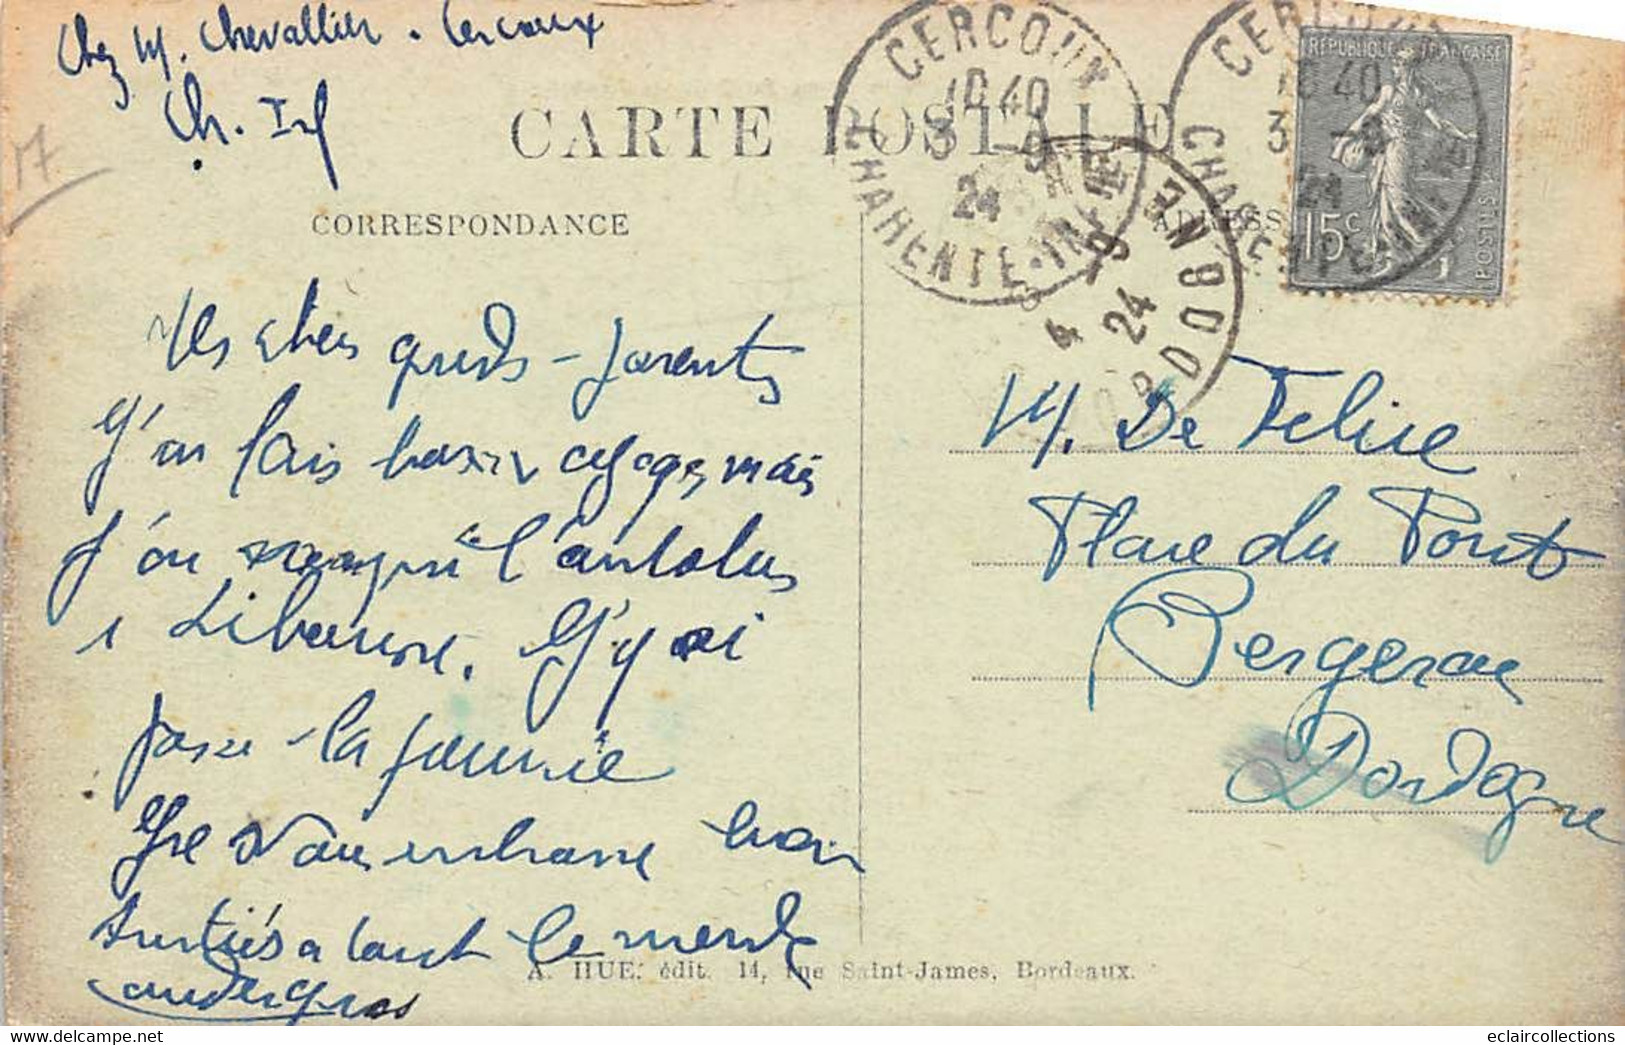 Chez M. Chevallier. Cercoux
Ch. Inf
17
CARTE POSTALE
CORRESPONDANCE
ADRESSE
CERCOUX
10 40
3 -9
24
CHARENTE-INFRE
CERCOUX
10 40
3 -9
24
CHARENTE-INFRE
4 -9
24
DORDOGNE
RÉPUBLIQUE FRANÇAISE
15c
POSTES
Mes chers grands-parents
J'ai fais bon voyage, mais
j'ai manqué l'autobus
à Libourne. J'y ai
passé la journée
Je vous embrasse bien
Amitiés à tout le monde
M. De Felice
Place du Pont
Bergerac
Dordogne
A. HUE. édit. 14, rue Saint-James, Bordeaux.
eclaircollections